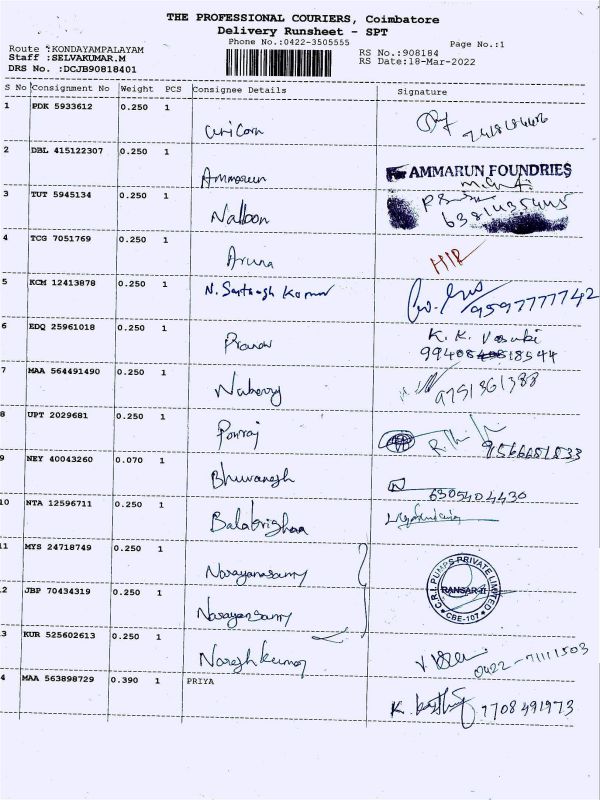 THE PROFESSIONAL COURIERS, Coimbatore
Delivery Runsheet - SPT
Phone No.:0422-3505555
Page No.:1
Route :KONDAYAMPALAYAM
Staff :SELVAKUMAR.M
DRS No. :DCJB90818401
RS No.:908184
RS Date:18-Mar-2022
S No Consignment No Weight PCS Consignee Details Signature
1 PDK 5933612 0.250 1 Unicorn
2 DBL 415122307 0.250 1 Ammarun For AMMARUN FOUNDRIES
3 TUT 5945134 0.250 1 Nalloon 6381435445
4 TCG 7051769 0.250 1 Aruna
5 KCM 12413878 0.250 1 N. Santhosh Kumar 9597777742
6 EDQ 25961018 0.250 1 Pranav K. K. Vasuki
9940818544
7 MAA 564491490 0.250 1 9751361388
8 UPT 2029681 0.250 1 Ponraj 9566681833
9 NEY 40043260 0.070 1 Bhuvanesh 6305404430
10 NTA 12596711 0.250 1 Balakrishnan
11 MYS 24718749 0.250 1 Narayanasamy C.R.I. PUMPS PRIVATE LIMITED
RANSAR-II
CBE-107
2 JBP 70434319 0.250 1 Narayanasamy
3 KUR 525602613 0.250 1 Nareshkumar 0422-7111503
4 MAA 563898729 0.390 1 PRIYA 7708491973